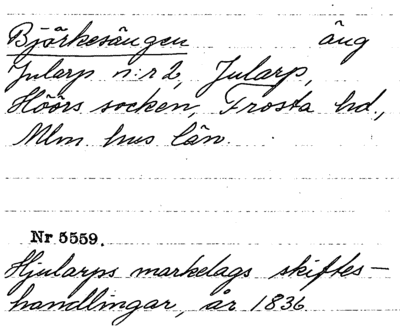 Björkesängen äng
Jularp n:r 2, Jularp,
Höörs socken, Frosta hd.,
Mlm hus län.
Nr 5559.
Hjularps markelags skiftes-
handlingar, år 1836.